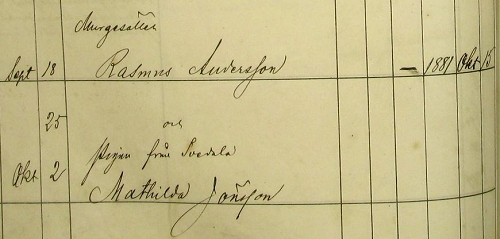 Murgesället
Sept 18 Rasmus Andersson — 1881 Okt 15
25 och
Pigan från Svedala
Okt 2
Mathilda Jönsson